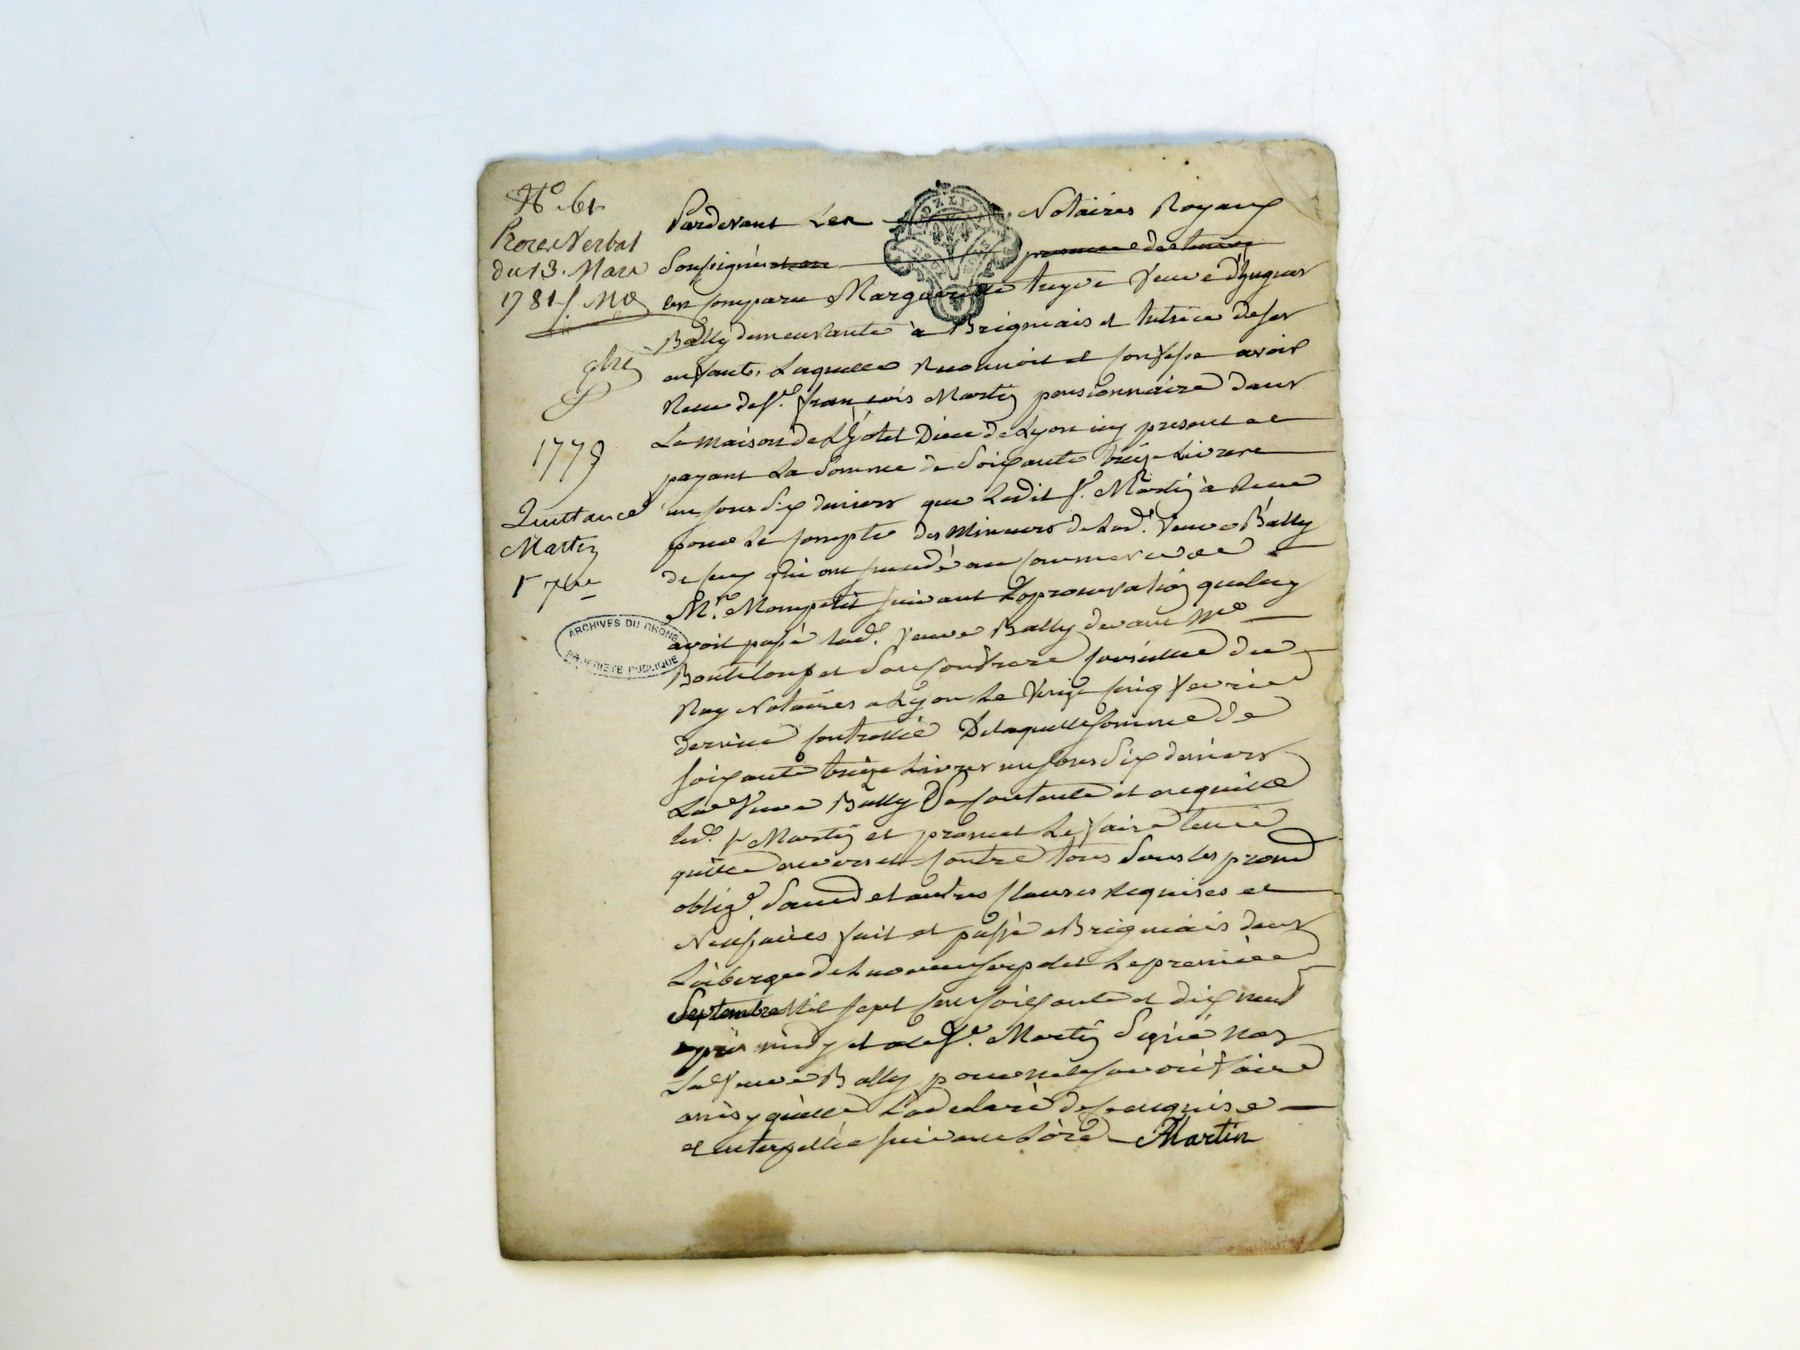 No. 61
Proces Verbal
du 13. Mars
1781 /. Me
1779
Quittance
Martin
1er 7bre
ARCHIVES DU RHONE
PROPRIETE PUBLIQUE
Pardevant Les Notaires Royaux
Soussignés
est comparu Margueritte veuve d'hugues
Bally demeurante à Brignais et tutrice de ses
enfants, Laquelle Reconnoit et confesse avoir
Receu de sr. françois Martin pensionnaire dans
La maison de L'hotel Dieu de Lyon icy present et
payant La Somme de Soixante treize Livres
un sous six deniers que Ledit sr. Martin à Receu
pour Le compte des Mineurs de Lad. veuve Bally
de
Mr. Mompetit suivant L'aprouvation que luy
avoit passé lad. veuve Bally devant Me
et son confrere conseillers du
Roy Notaires a Lyon Le vingt cinq fevrier
dernier controllé De laquelle somme de
soixante treize Livres un sous six deniers
La veuve Bally Se contente et en quitte
led. sr Martin et promet Le faire tenir
quitte envers et contre tous Sous les prom
oblig. Soumd et autres clauses Requises et
Necessaires fait et passé a Brignais dans
L'aberge de Le premier
Septembre Mil sept cent soixante et dix neuf
après midy et a led sr. Martin Signé non
La veuve Bally pour ne le savoir faire
ainsy qu'elle L'a declaré de ce enquise
et interpellée suivant L'ord Martin